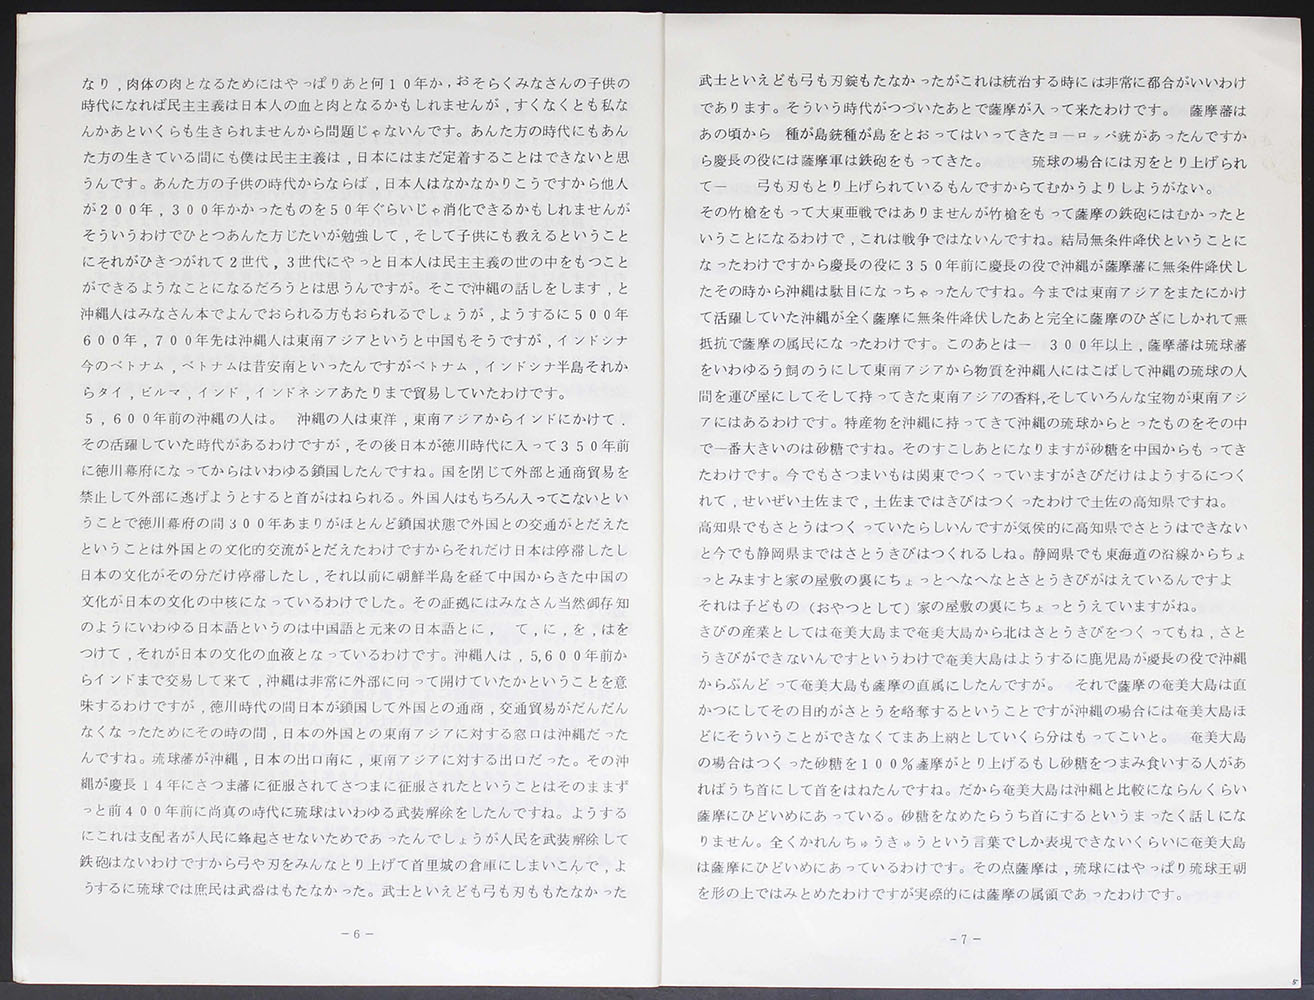 なり,肉体の肉となるためにはやっぱりあと何10年か,おそらくみなさんの子供の
時代になれば民主主義は日本人の血と肉となるかもしれませんが,すくなくとも私な
んかあといくらも生きられませんから問題じゃないんです。あんた方の時代にもあん
た方の生きている間にも僕は民主主義は,日本にはまだ定着することはできないと思
うんです。あんた方の子供の時代からならば,日本人はなかなかりこうですから他人
が200年,300年かかったものを50年ぐらいじゃ消化できるかもしれませんが
そういうわけでひとつあんた方じたいが勉強して,そして子供にも教えるということ
にそれがひきつがれて2世代,3世代にやっと日本人は民主主義の世の中をもつこと
ができるようなことになるだろうとは思うんですが。そこで沖縄の話しをします,と
沖縄人はみなさん本でよんでおられる方もおられるでしょうが,ようするに500年
600年,700年先は沖縄人は東南アジアというと中国もそうですが,インドシナ
今のベトナム,ベトナムは昔安南といったんですがベトナム,インドシナ半島それか
らタイ,ビルマ,インド,インドネシアあたりまで貿易していたわけです。
5,600年前の沖縄の人は。 沖縄の人は東洋,東南アジアからインドにかけて.
その活躍していた時代があるわけですが,その後日本が徳川時代に入って350年前
に徳川幕府になってからはいわゆる鎖国したんですね。国を閉じて外部と通商貿易を
禁止して外部に逃げようとすると首がはねられる。外国人はもちろん入ってこないとい
うことで徳川幕府の間300年あまりがほとんど鎖国状態で外国との交通がとだえた
ということは外国との文化的交流がとだえたわけですからそれだけ日本は停滞したし
日本の文化がその分だけ停滞したし,それ以前に朝鮮半島を経て中国からきた中国の
文化が日本の文化の中核になっているわけでした。その証拠にはみなさん当然御存知
のようにいわゆる日本語というのは中国語と元来の日本語とに, て,に,を,はを
つけて,それが日本の文化の血液となっているわけです。沖縄人は,5,600年前か
らインドまで交易して来て,沖縄は非常に外部に向って開けていたかということを意
味するわけですが,徳川時代の間日本が鎖国して外国との通商,交通貿易がだんだん
なくなったためにその時の間,日本の外国との東南アジアに対する窓口は沖縄だった
んですね。琉球藩が沖縄,日本の出口南に,東南アジアに対する出口だった。その沖
縄が慶長14年にさつま藩に征服されてさつまに征服されたということはそのままず
っと前400年前に尚真の時代に琉球はいわゆる武装解除をしたんですね。ようする
にこれは支配者が人民に蜂起させないためであったんでしょうが人民を武装解除して
鉄砲はないわけですから弓や刃をみんなとり上げて首里城の倉庫にしまいこんで,よ
うするに琉球では庶民は武器はもたなかった。武士といえども弓も刃ももたなかった
-6-
武士といえども弓も刃錠もたなかったがこれは統治する時には非常に都合がいいわけ
であります。そういう時代がつづいたあとで薩摩が入って来たわけです。 薩摩藩は
あの頃から 種が島銃種が島をとおってはいってきたヨーロッパ銃があったんですか
ら慶長の役には薩摩軍は鉄砲をもってきた。 琉球の場合には刃をとり上げられ
て― 弓も刃もとり上げられているもんですからてむかうよりしようがない。
その竹槍をもって大東亜戦ではありませんが竹槍をもって薩摩の鉄砲にはむかったと
いうことになるわけで,これは戦争ではないんですね。結局無条件降伏ということに
なったわけですから慶長の役に350年前に慶長の役で沖縄が薩摩藩に無条件降伏し
たその時から沖縄は駄目になっちゃったんですね。今までは東南アジアをまたにかけ
て活躍していた沖縄が全く薩摩に無条件降伏したあと完全に薩摩のひざにしかれて無
抵抗で薩摩の属民になったわけです。このあとは― 300年以上,薩摩藩は琉球藩
をいわゆるう飼のうにして東南アジアから物質を沖縄人にはこばして沖縄の琉球の人
間を運び屋にしてそして持ってきた東南アジアの香料,そしていろんな宝物が東南アジ
アにはあるわけです。特産物を沖縄に持ってきて沖縄の琉球からとったものをその中
で一番大きいのは砂糖ですね。そのすこしあとになりますが砂糖を中国からもってき
たわけです。今でもさつまいもは関東でつくっていますがきびだけはようするにつく
れて,せいぜい土佐まで,土佐まではきびはつくったわけで土佐の高知県ですね。
高知県でもさとうはつくっていたらしいんですが気侯的に高知県でさとうはできない
と今でも静岡県まではさとうきびはつくれるしね。静岡県でも東海道の沿線からちょ
っとみますと家の屋敷の裏にちょっとへなへなとさとうきびがはえているんですよ
それは子どもの(おやつとして)家の屋敷の裏にちょっとうえていますがね。
きびの産業としては奄美大島まで奄美大島から北はさとうきびをつくってもね,さと
うきびができないんですというわけで奄美大島はようするに鹿児島が慶長の役で沖縄
からぶんどって奄美大島も薩摩の直属にしたんですが。 それで薩摩の奄美大島は直
かつにしてその目的がさとうを略奪するということですが沖縄の場合には奄美大島ほ
どにそういうことができなくてまあ上納としていくら分はもってこいと。 奄美大島
の場合はつくった砂糖を100%薩摩がとり上げるもし砂糖をつまみ食いする人があ
ればうち首にして首をはねたんですね。だから奄美大島は沖縄と比較にならんくらい
薩摩にひどいめにあっている。砂糖をなめたらうち首にするというまったく話しにな
りません。全くかれんちゅうきゅうという言葉でしか表現できないくらいに奄美大島
は薩摩にひどいめにあっているわけです。その点薩摩は,琉球にはやっぱり琉球王朝
を形の上ではみとめたわけですが実際的には薩摩の属領であったわけです。
-7-
5